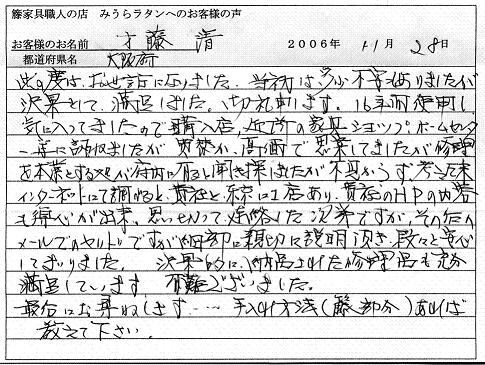 籐家具職人の店 みうらラタンへのお客様の声
お客様のお名前 藤 清 2006年 11月 28日
都道府県名 大阪府
此の度は、お世話になりました。当初は多少不安もありましたが
決果として、満足しました。御礼申します。16年間使用し
気に入ってましたので購入店、近所の家具ショップ、ホームセンター
等に訪ねましたが 高価で思案してましたが修理
を本業とする 府内に有ると聞き探しましたが不可
インターネットにて調ると、貴社と東京に1店あり、貴店のHPの内容
も得心が出来、思い切って連絡した次第ですが、その后の
メールでのやりとりですが細部に親切に説明頂き、段々と安心
しておりました。決果的に、納品された修理品も充分
満足しています 有難うございました。
最后にお尋ねします…… 手入れ方法(籐部分)あれば
教えて下さい。